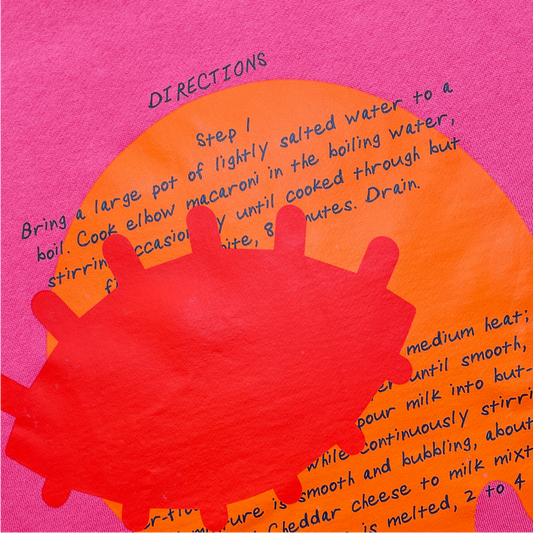 DIRECTIONS
Step 1
Bring a large pot of lightly salted water to a
boil. Cook elbow macaroni in the boiling water,
stirring occasionally until cooked through but
bite, 8 minutes. Drain.
medium heat;
until smooth,
pour milk into but-
while continuously stirri
is smooth and bubbling, about
Cheddar cheese to milk mixt
is melted, 2 to 4